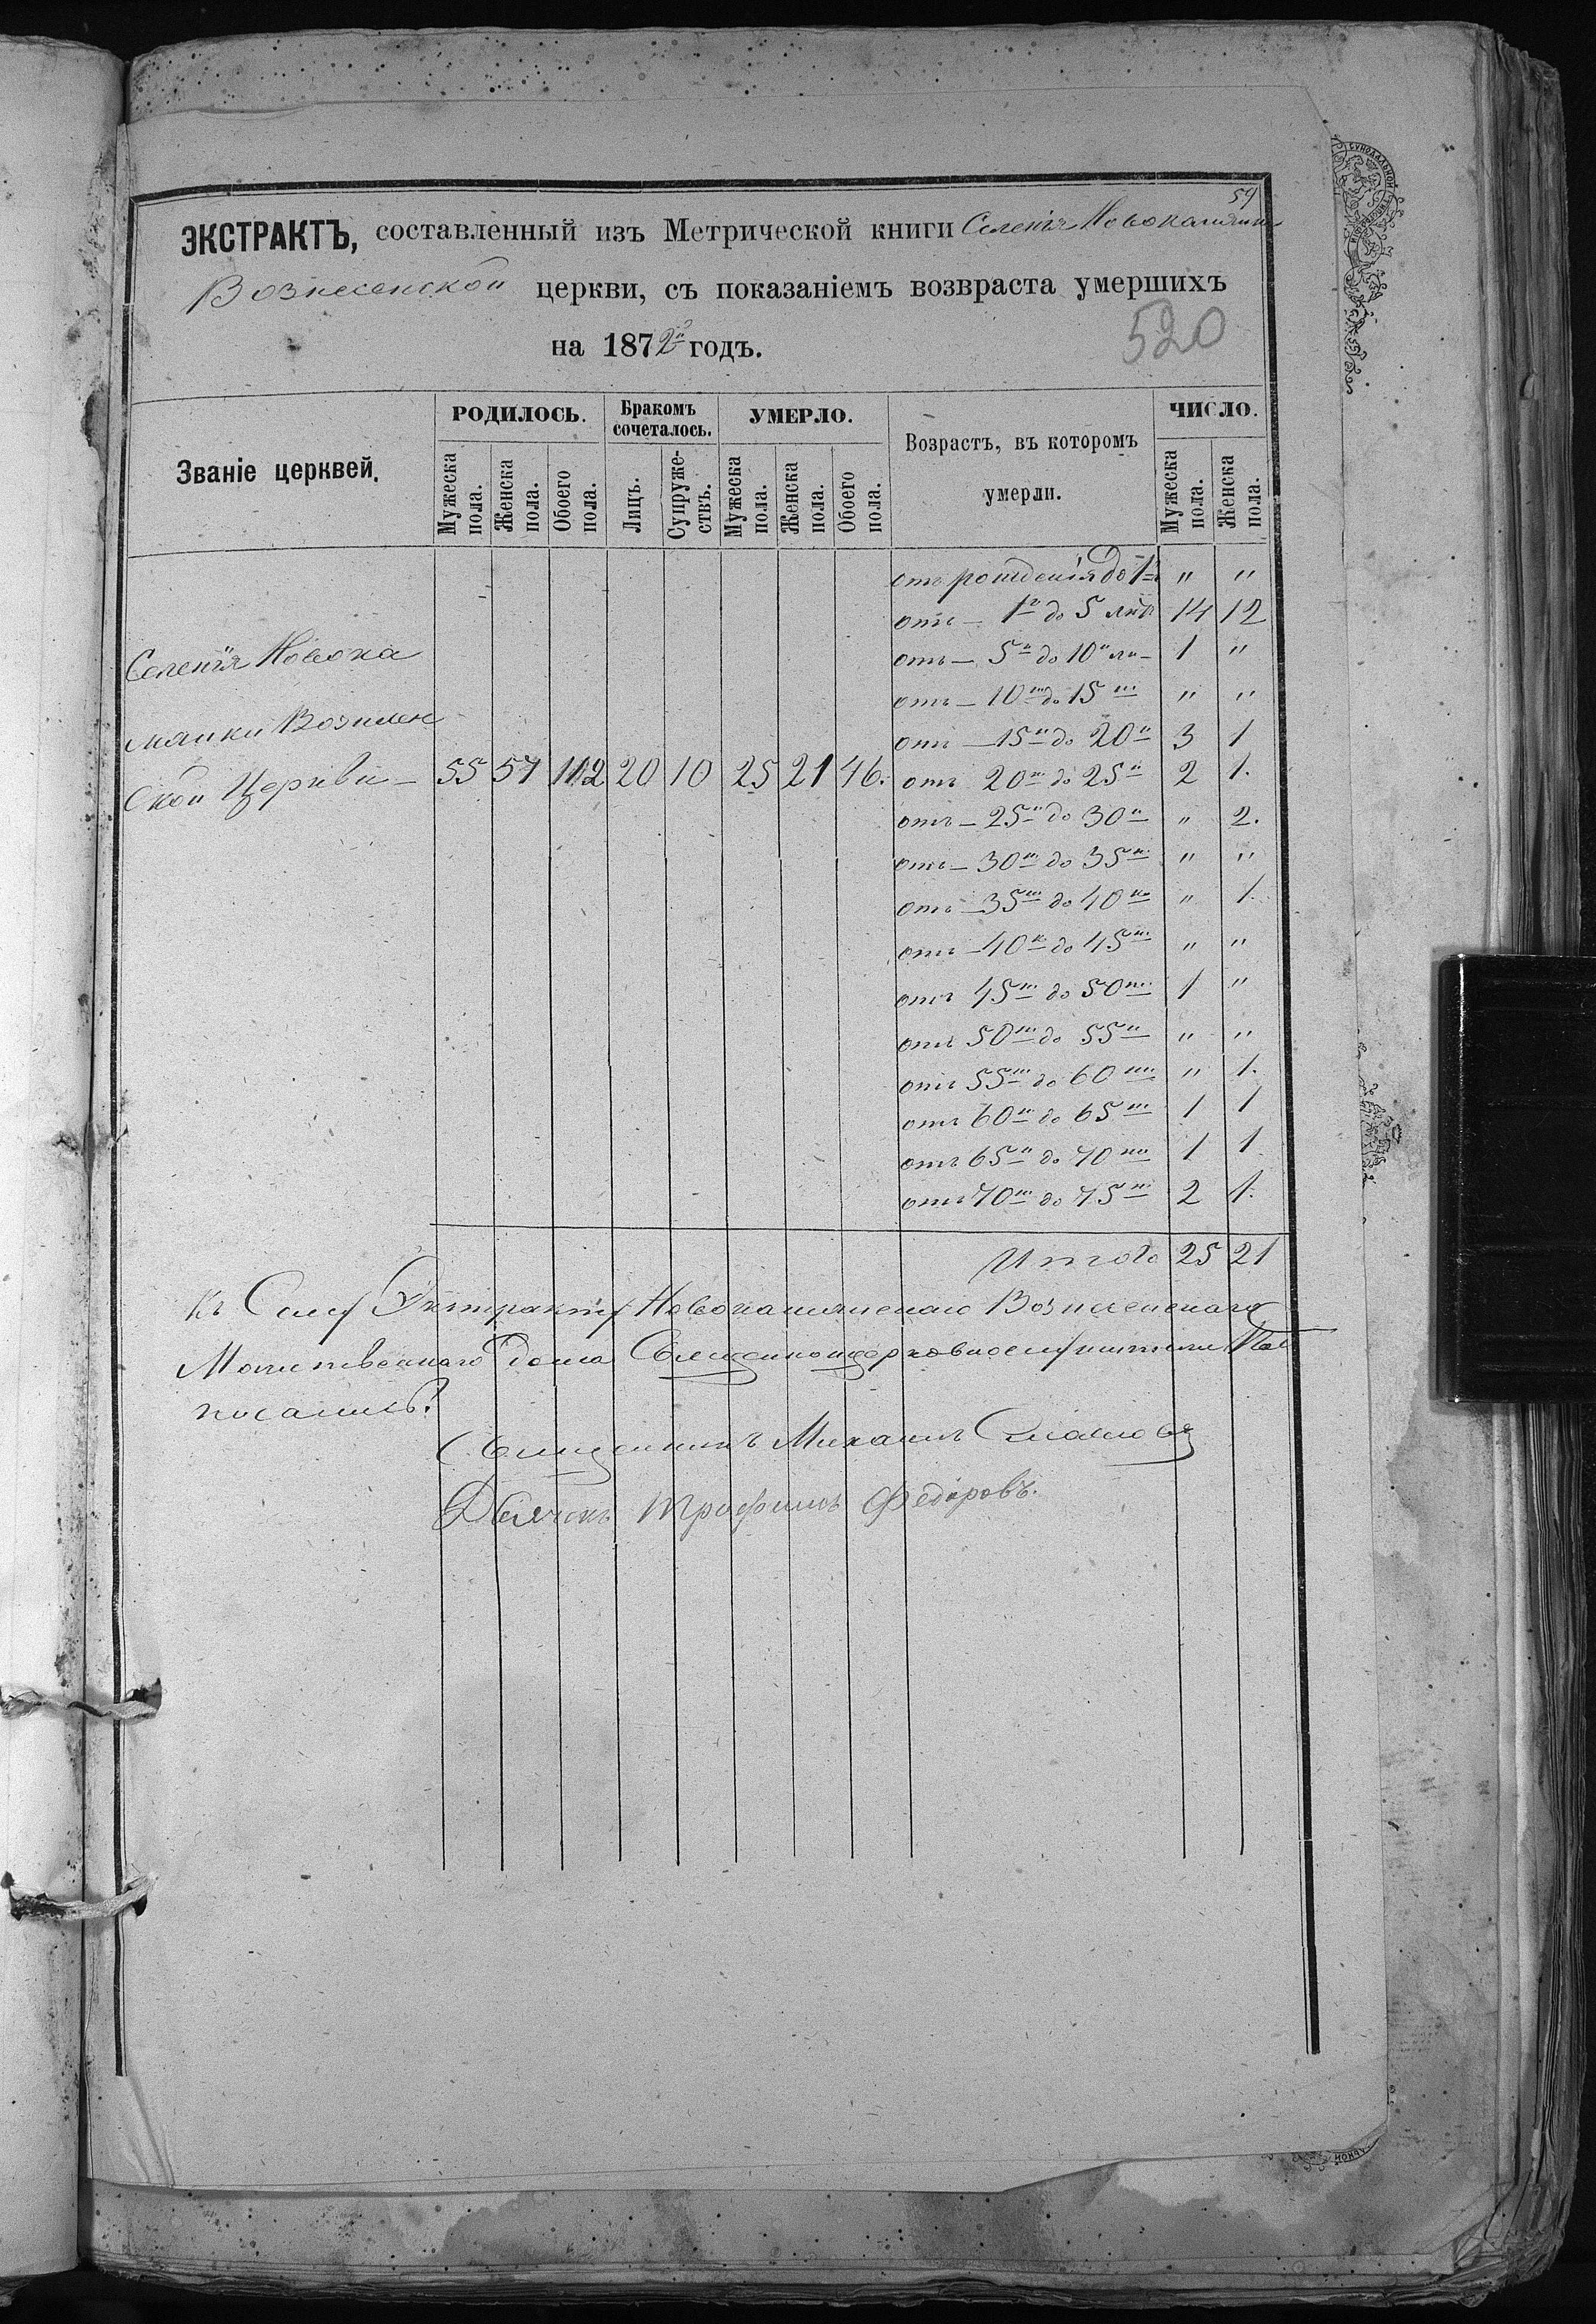 59
ЭКСТРАКТЪ, составленный изъ Метрической книги Селенія Новокаманки
Вознесенской церкви, съ показаніемъ возвраста умершихъ
на 1872й годъ.
520
Званіе церквей. РОДИЛОСЬ. Бракомъ сочеталось. УМЕРЛО. Возрастъ, въ которомъ умерли. ЧИСЛО.
Мужеска пола. Женска пола. Обоего пола. Лицъ. Супружествъ. Мужеска пола. Женска пола. Обоего пола. Мужеска пола. Женска пола.
отъ рожденія до 1 " "
отъ – 1г до 5 лѣтъ 14 12
Селенія Новока
отъ – 5и до 10и 1 "
отъ – 10ти до 15ти " "
манки Вознесен
отъ – 15и до 20и 3 1
ской Церкви – 55 57 112 20 10 25 21 46. отъ 20и до 25и 2 1.
отъ – 25и до 30и " 2.
отъ – 30ти до 35ти " "
отъ – 35ти до 40ка " 1.
отъ – 40к до 45ти " "
отъ 45ти до 50ти 1 "
отъ 50ти до 55и " "
отъ 55ти до 60ти " 1.
отъ 60ти до 65ти 1 1
отъ 65и до 70ти 1 1
отъ 70ти до 75ти 2 1.
Итого 25 21
Къ Сему Экстракту Новокаманскаго Вознесенскаго
Молитвеннаго дома Священноцерковнослужители Под
писались:
Священникъ Михаилъ
Дьячекъ Трофимъ Федоровъ.